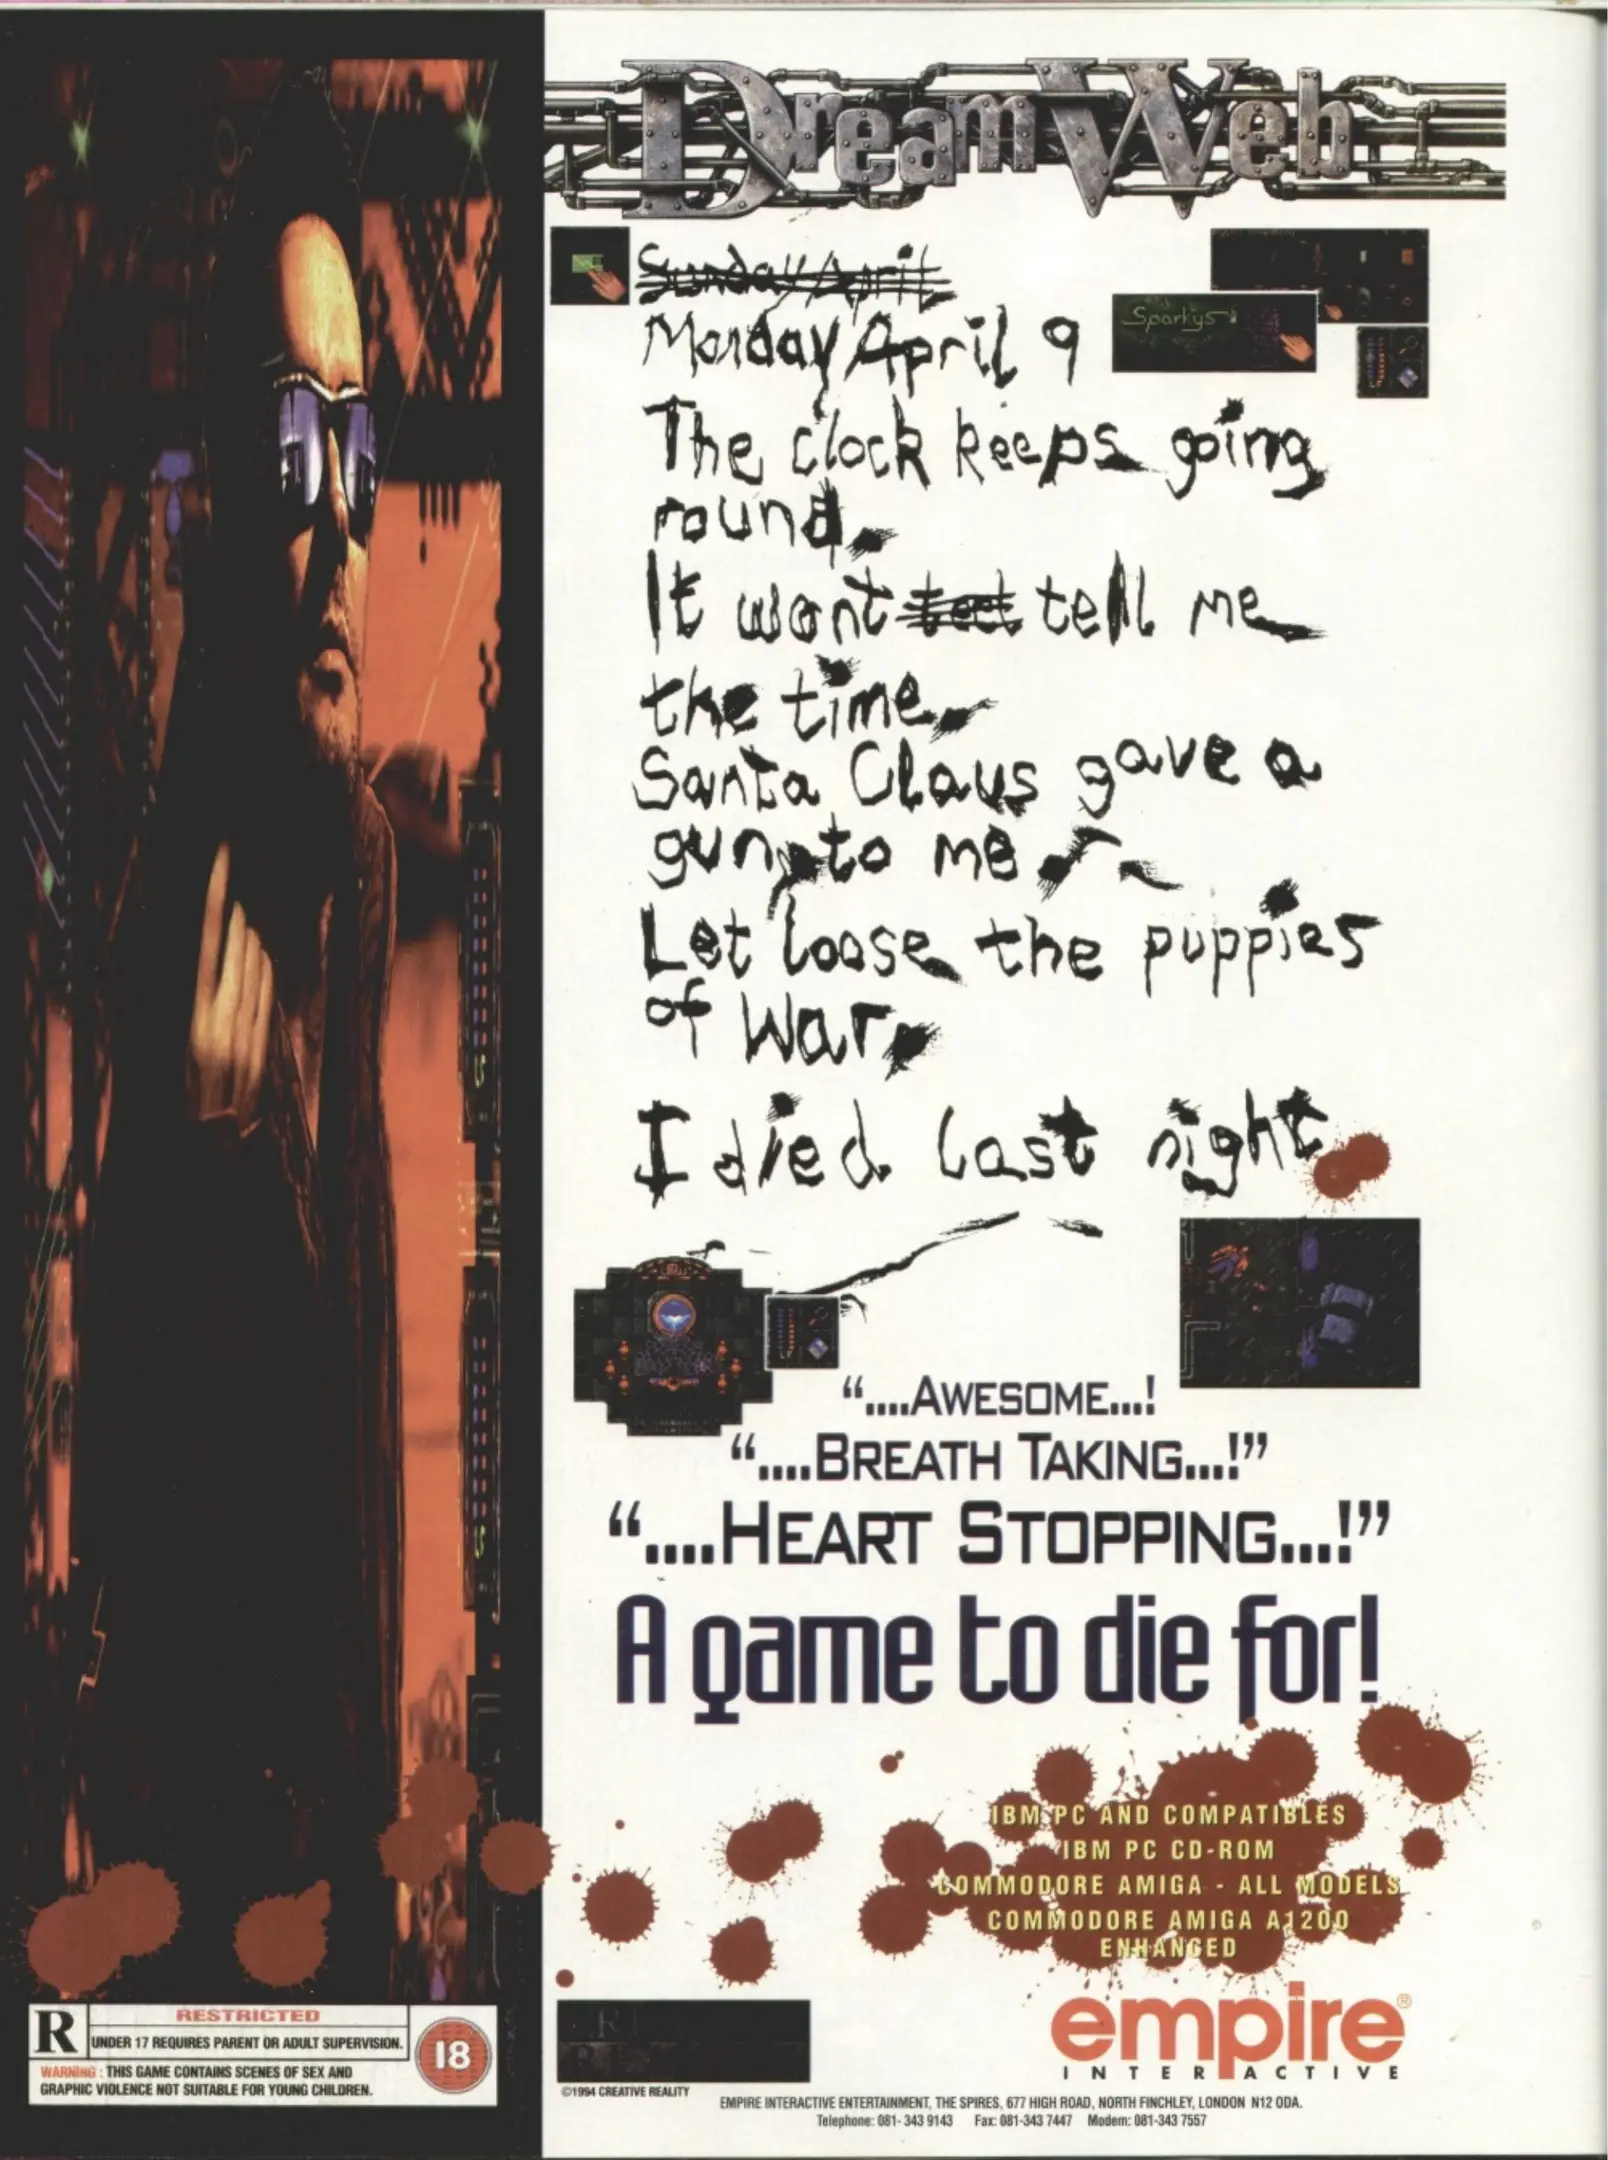 DreamWeb
Sunday April
Monday April 9
Sparkys
The clock keeps going
round.
It wont teel tell me
the time.
Santa Claus gave a
gun to me
Let loose the puppies
of War.
I died last night
“....AWESOME...!
“....BREATH TAKING...!”
“....HEART STOPPING...!”
A game to die for!
IBM PC AND COMPATIBLES
IBM PC CD-ROM
COMMODORE AMIGA - ALL MODELS
COMMODORE AMIGA A1200
ENHANCED
R
RESTRICTED
UNDER 17 REQUIRES PARENT OR ADULT SUPERVISION.
WARNING : THIS GAME CONTAINS SCENES OF SEX AND
GRAPHIC VIOLENCE NOT SUITABLE FOR YOUNG CHILDREN.
18
empire®
INTERACTIVE
©1994 CREATIVE REALITY
EMPIRE INTERACTIVE ENTERTAINMENT, THE SPIRES, 677 HIGH ROAD, NORTH FINCHLEY, LONDON N12 ODA.
Telephone: 081- 343 9143 Fax: 081-343 7447 Modem: 081-343 7557